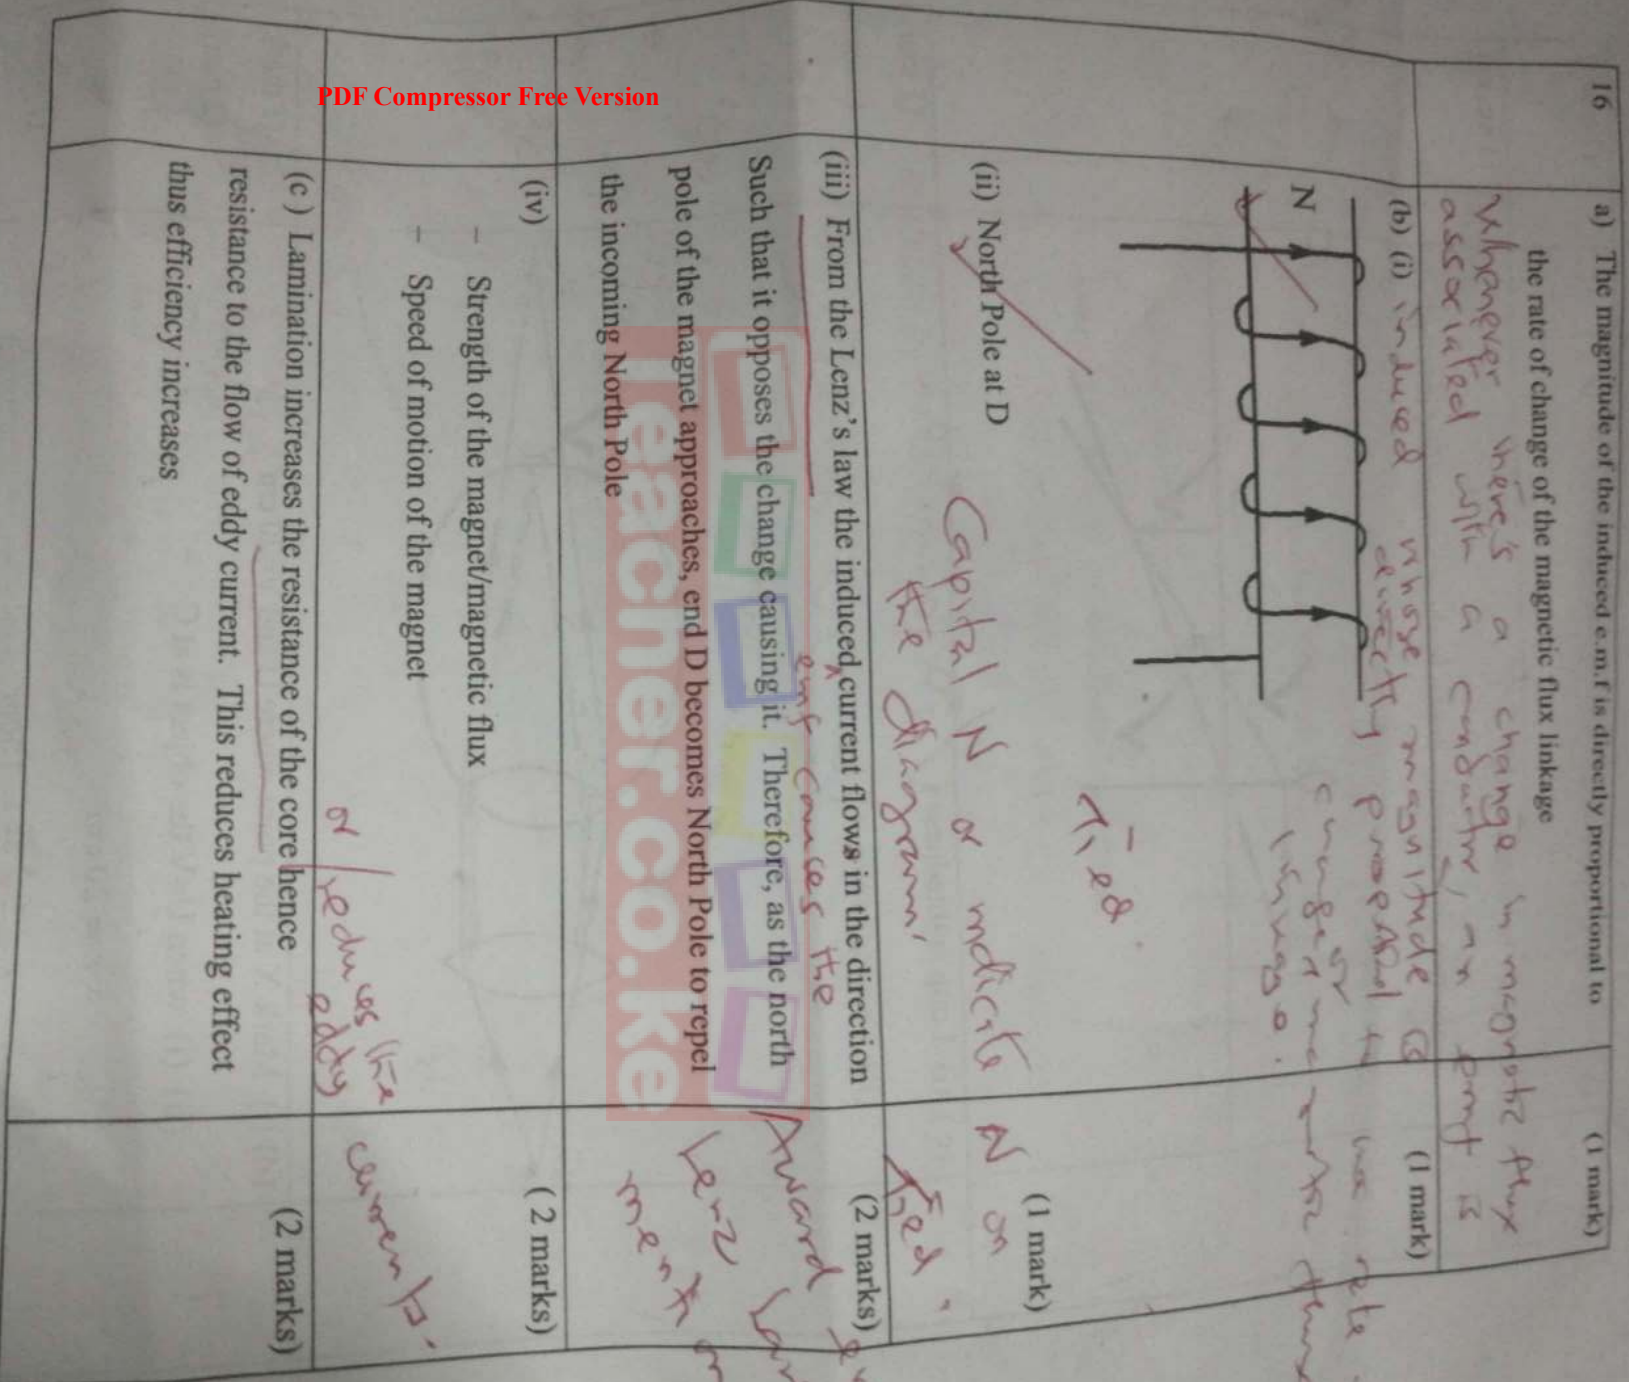 PDF Compressor Free Version
16
a) The magnitude of the induced e.m.f is directly proportional to
the rate of change of the magnetic flux linkage
(1 mark)
Whenever there's a change in magnetic flux
associated with a conductor, an emf is
(b) (i) induced whose magnitude is
(1 mark)
directly proportional to the rate
change magnetic flux
linkage.
N
Tied.
(ii) North Pole at D
(1 mark)
Capital N or indicate N on
the diagram.
Tied.
(iii) From the Lenz's law the induced current flows in the direction
(2 marks)
emf causes the
Such that it opposes the change causing it. Therefore, as the north
pole of the magnet approaches, end D becomes North Pole to repel
the incoming North Pole
Award
Lenz
(iv)
(2 marks)
– Strength of the magnet/magnetic flux
– Speed of motion of the magnet
or reduces the
eddy
currents.
(c) Lamination increases the resistance of the core hence
(2 marks)
resistance to the flow of eddy current. This reduces heating effect
thus efficiency increases
Teacher.co.ke